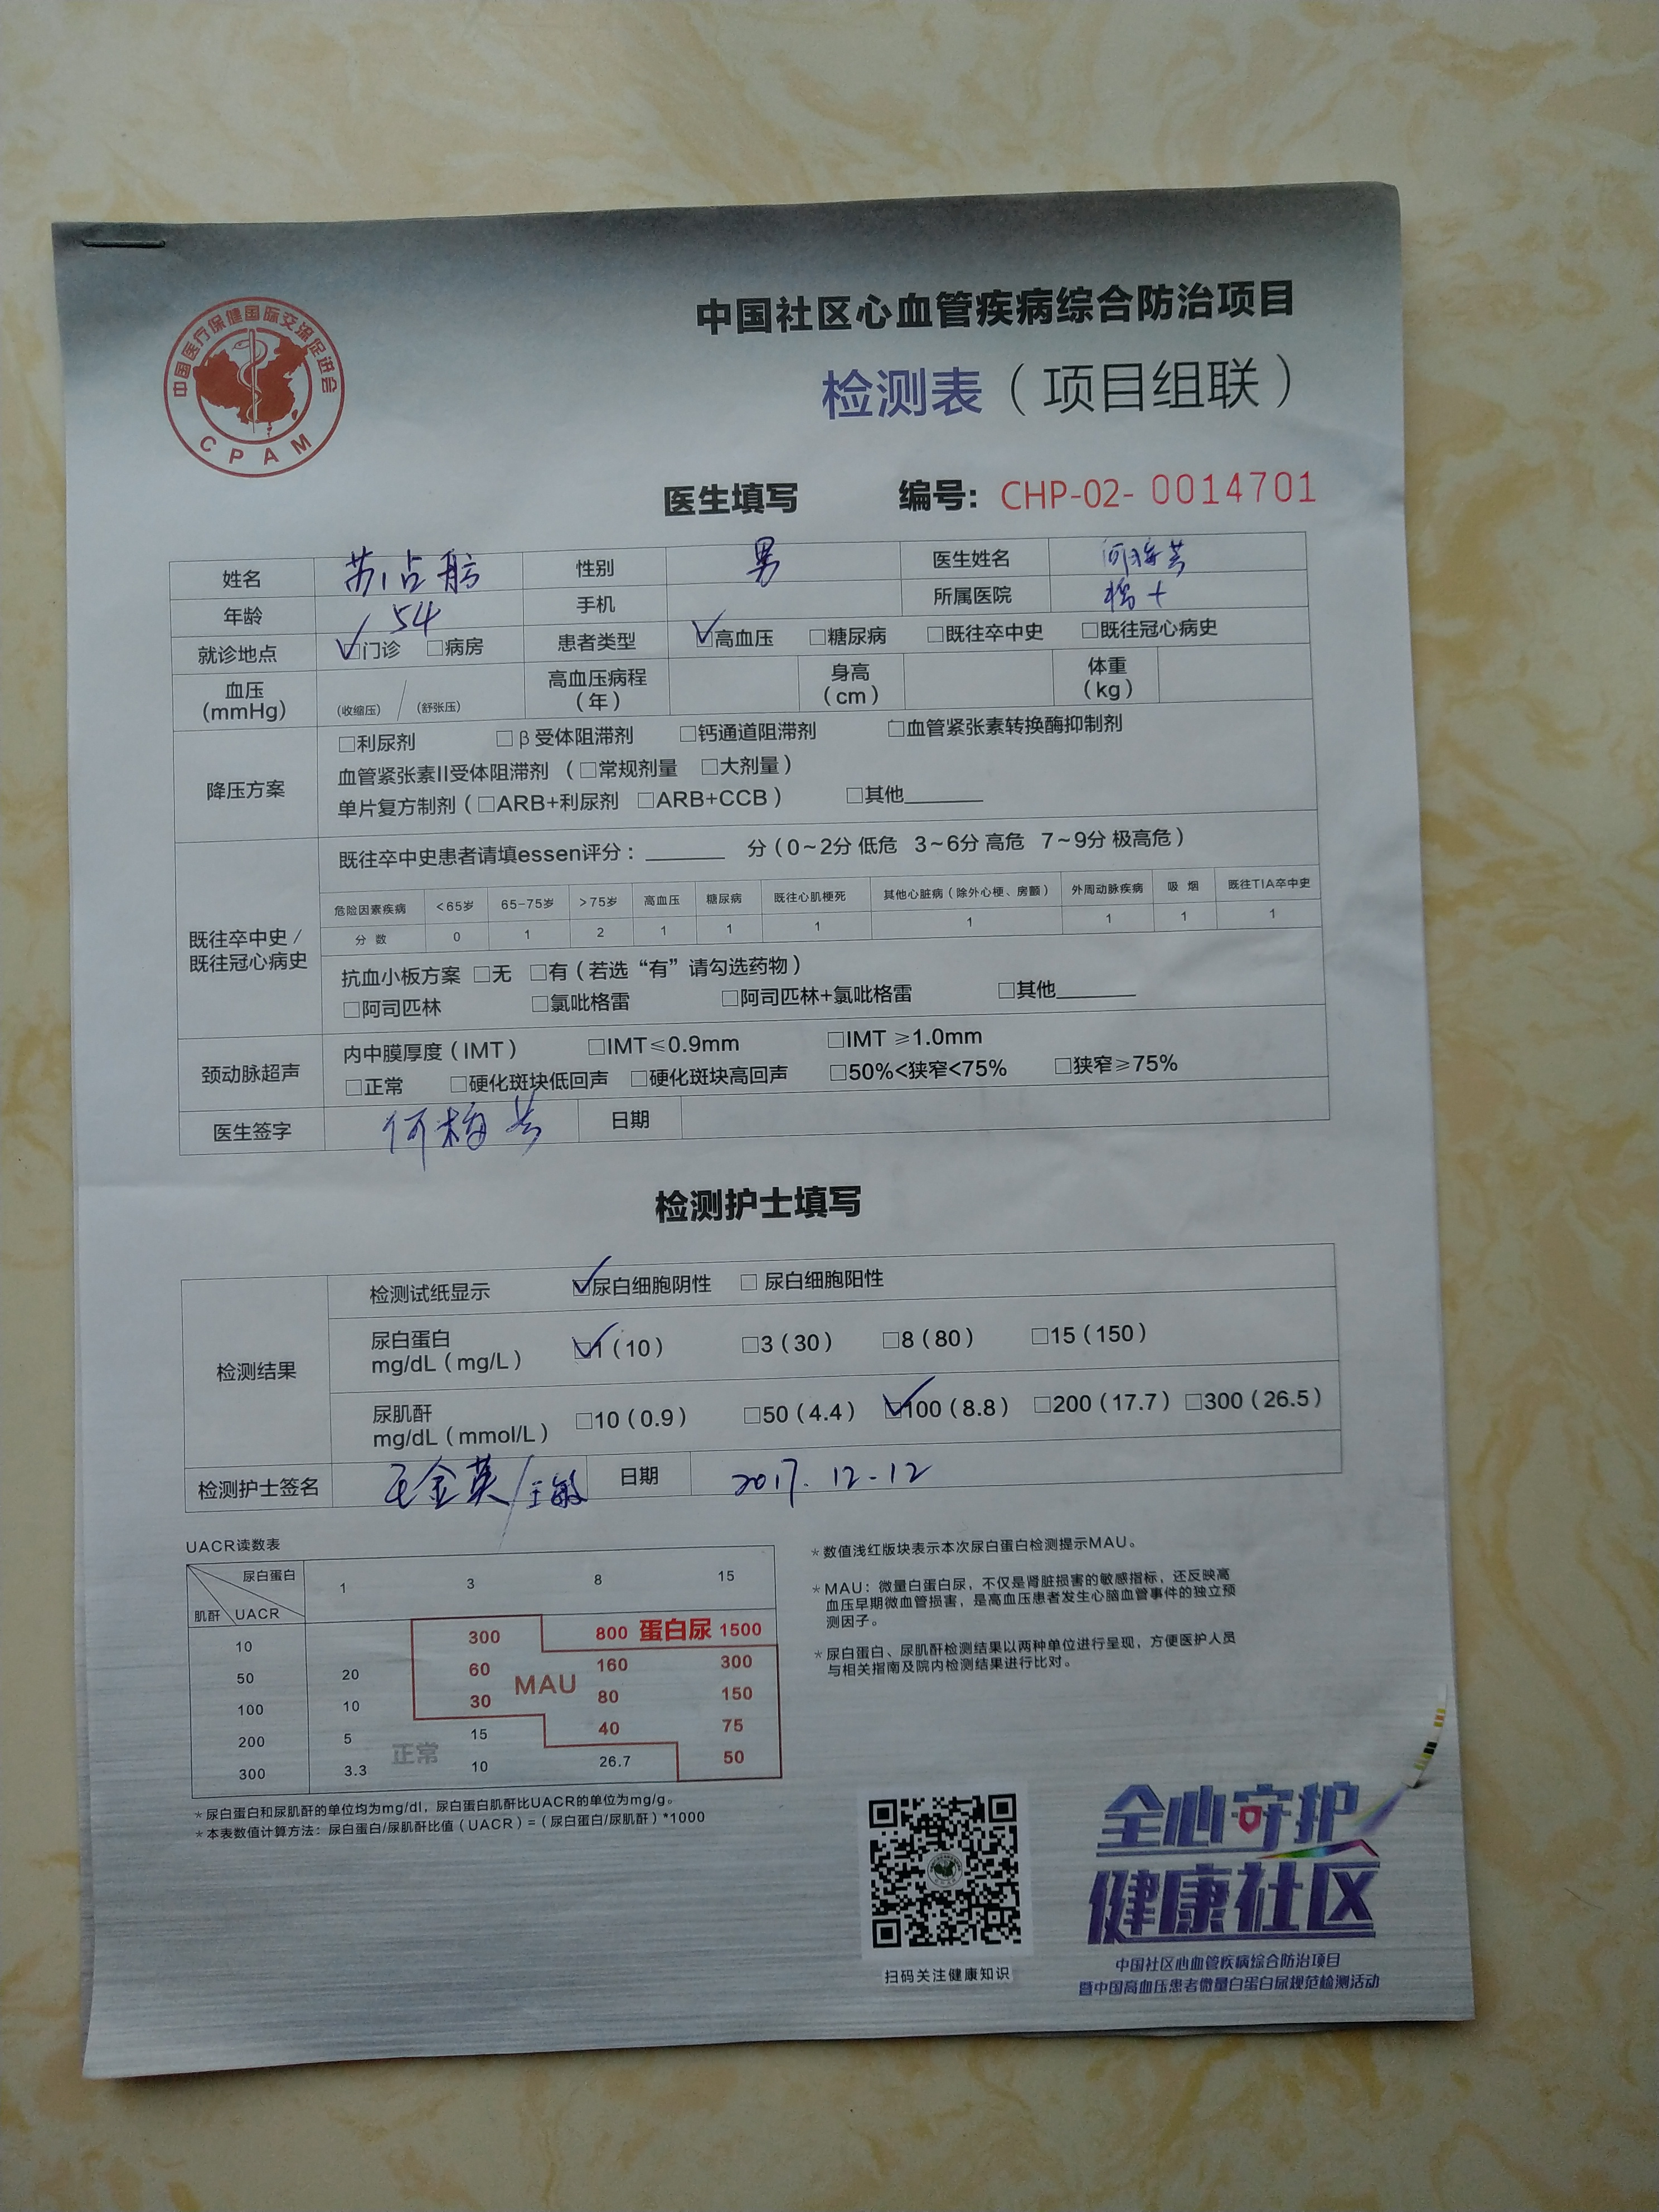 中国医疗保健国际交流促进会
CPAM
中国社区心血管疾病综合防治项目
检测表（项目组联）
医生填写 编号：CHP-02- 0014701
姓名 苏占 性别 男 医生姓名 何梅芸
年龄 54 手机 所属医院
就诊地点 ☑门诊 □病房 患者类型 ☑高血压 □糖尿病 □既往卒中史 □既往冠心病史
血压（mmHg） （收缩压） / （舒张压） 高血压病程（年） 身高（cm） 体重（kg）
降压方案 □利尿剂 □β受体阻滞剂 □钙通道阻滞剂 □血管紧张素转换酶抑制剂
血管紧张素II受体阻滞剂（□常规剂量 □大剂量）
单片复方制剂（□ARB+利尿剂 □ARB+CCB） □其他______
既往卒中史/既往冠心病史 既往卒中史患者请填essen评分：______ 分（0~2分 低危 3~6分 高危 7~9分 极高危）
危险因素疾病 <65岁 65-75岁 >75岁 高血压 糖尿病 既往心肌梗死 其他心脏病（除外心梗、房颤） 外周动脉疾病 吸 烟 既往TIA卒中史
分 数 0 1 2 1 1 1 1 1 1 1
抗血小板方案 □无 □有（若选“有”请勾选药物）
□阿司匹林 □氯吡格雷 □阿司匹林+氯吡格雷 □其他______
颈动脉超声 内中膜厚度（IMT） □IMT≤0.9mm □IMT ≥1.0mm
□正常 □硬化斑块低回声 □硬化斑块高回声 □50%<狭窄<75% □狭窄≥75%
医生签字 何梅芸 日期
检测护士填写
检测结果 检测试纸显示 ☑尿白细胞阴性 □ 尿白细胞阳性
尿白蛋白 mg/dL（mg/L） ☑1（10） □3（30） □8（80） □15（150）
尿肌酐 mg/dL（mmol/L） □10（0.9） □50（4.4） ☑100（8.8） □200（17.7） □300（26.5）
检测护士签名 王金英/王敏 日期 2017.12-12
UACR读数表
尿白蛋白 肌酐 UACR 1 3 8 15
10 300 800 蛋白尿 1500
50 20 60 MAU 160 300
100 10 30 80 150
200 5 正常 15 40 75
300 3.3 10 26.7 50
*尿白蛋白和尿肌酐的单位均为mg/dl，尿白蛋白肌酐比UACR的单位为mg/g。
*本表数值计算方法：尿白蛋白/尿肌酐比值（UACR）=（尿白蛋白/尿肌酐）*1000
*数值浅红版块表示本次尿白蛋白检测提示MAU。
*MAU：微量白蛋白尿，不仅是肾脏损害的敏感指标，还反映高
血压早期微血管损害，是高血压患者发生心脑血管事件的独立预
测因子。
*尿白蛋白、尿肌酐检测结果以两种单位进行呈现，方便医护人员
与相关指南及院内检测结果进行比对。
扫码关注健康知识
全心守护
健康社区
中国社区心血管疾病综合防治项目
暨中国高血压患者微量白蛋白尿规范检测活动